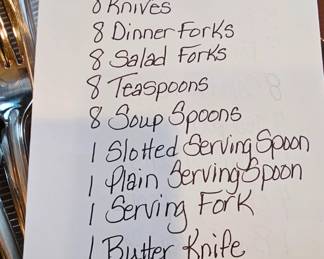 8 Knives
8 Dinner Forks
8 Salad Forks
8 Teaspoons
8 Soup Spoons
1 Slotted Serving Spoon
1 Plain Serving Spoon
1 Serving Fork
1 Butter Knife